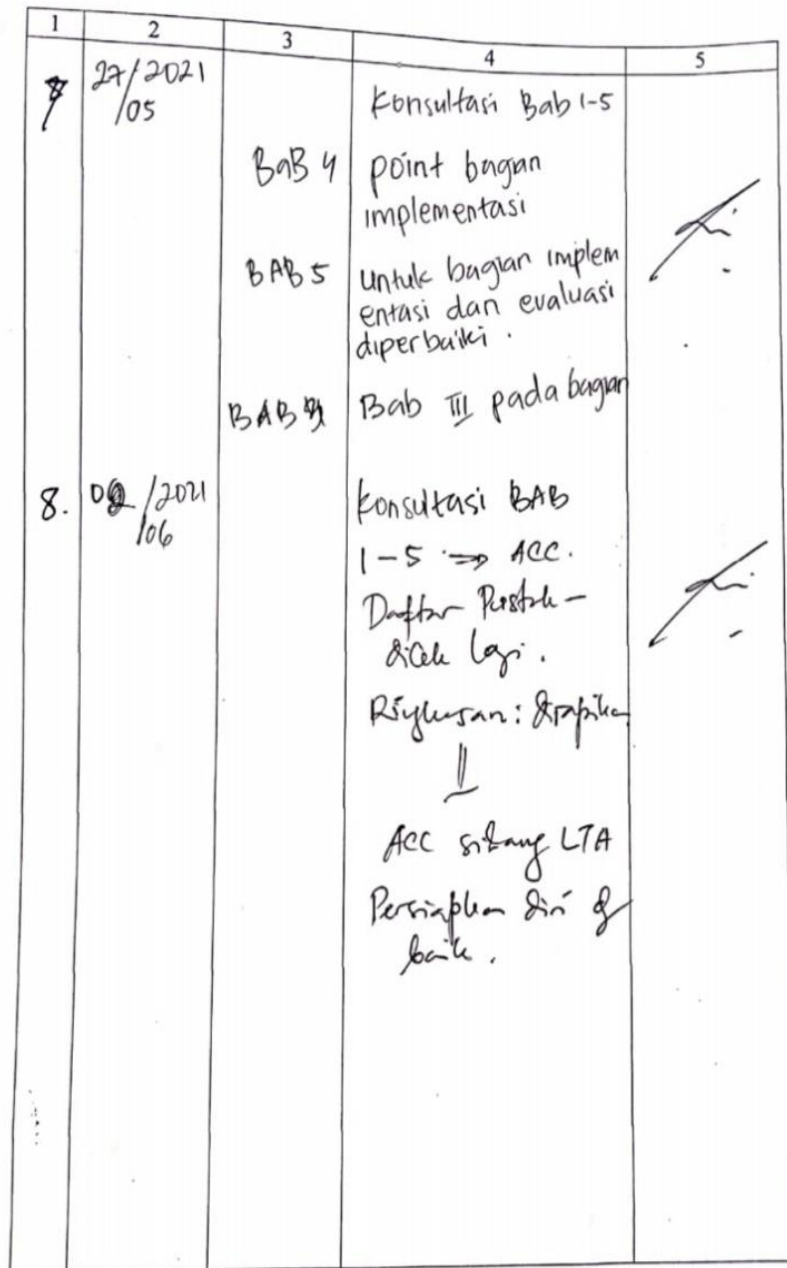 1 2 3 4 5
7 27/2021
/05
Konsultasi Bab 1-5
BaB 4 point bagian
implementasi
BAB 5 untuk bagian implem
entasi dan evaluasi
diperbaiki.
BAB Bab III pada bagian
8. /2021
/06
Konsultasi BAB
1-5 => ACC.
Daftar Pustak-
dicek lagi.
Ringkasan: dirapikan
ACC sidang LTA
Persiapkan diri dg
baik.